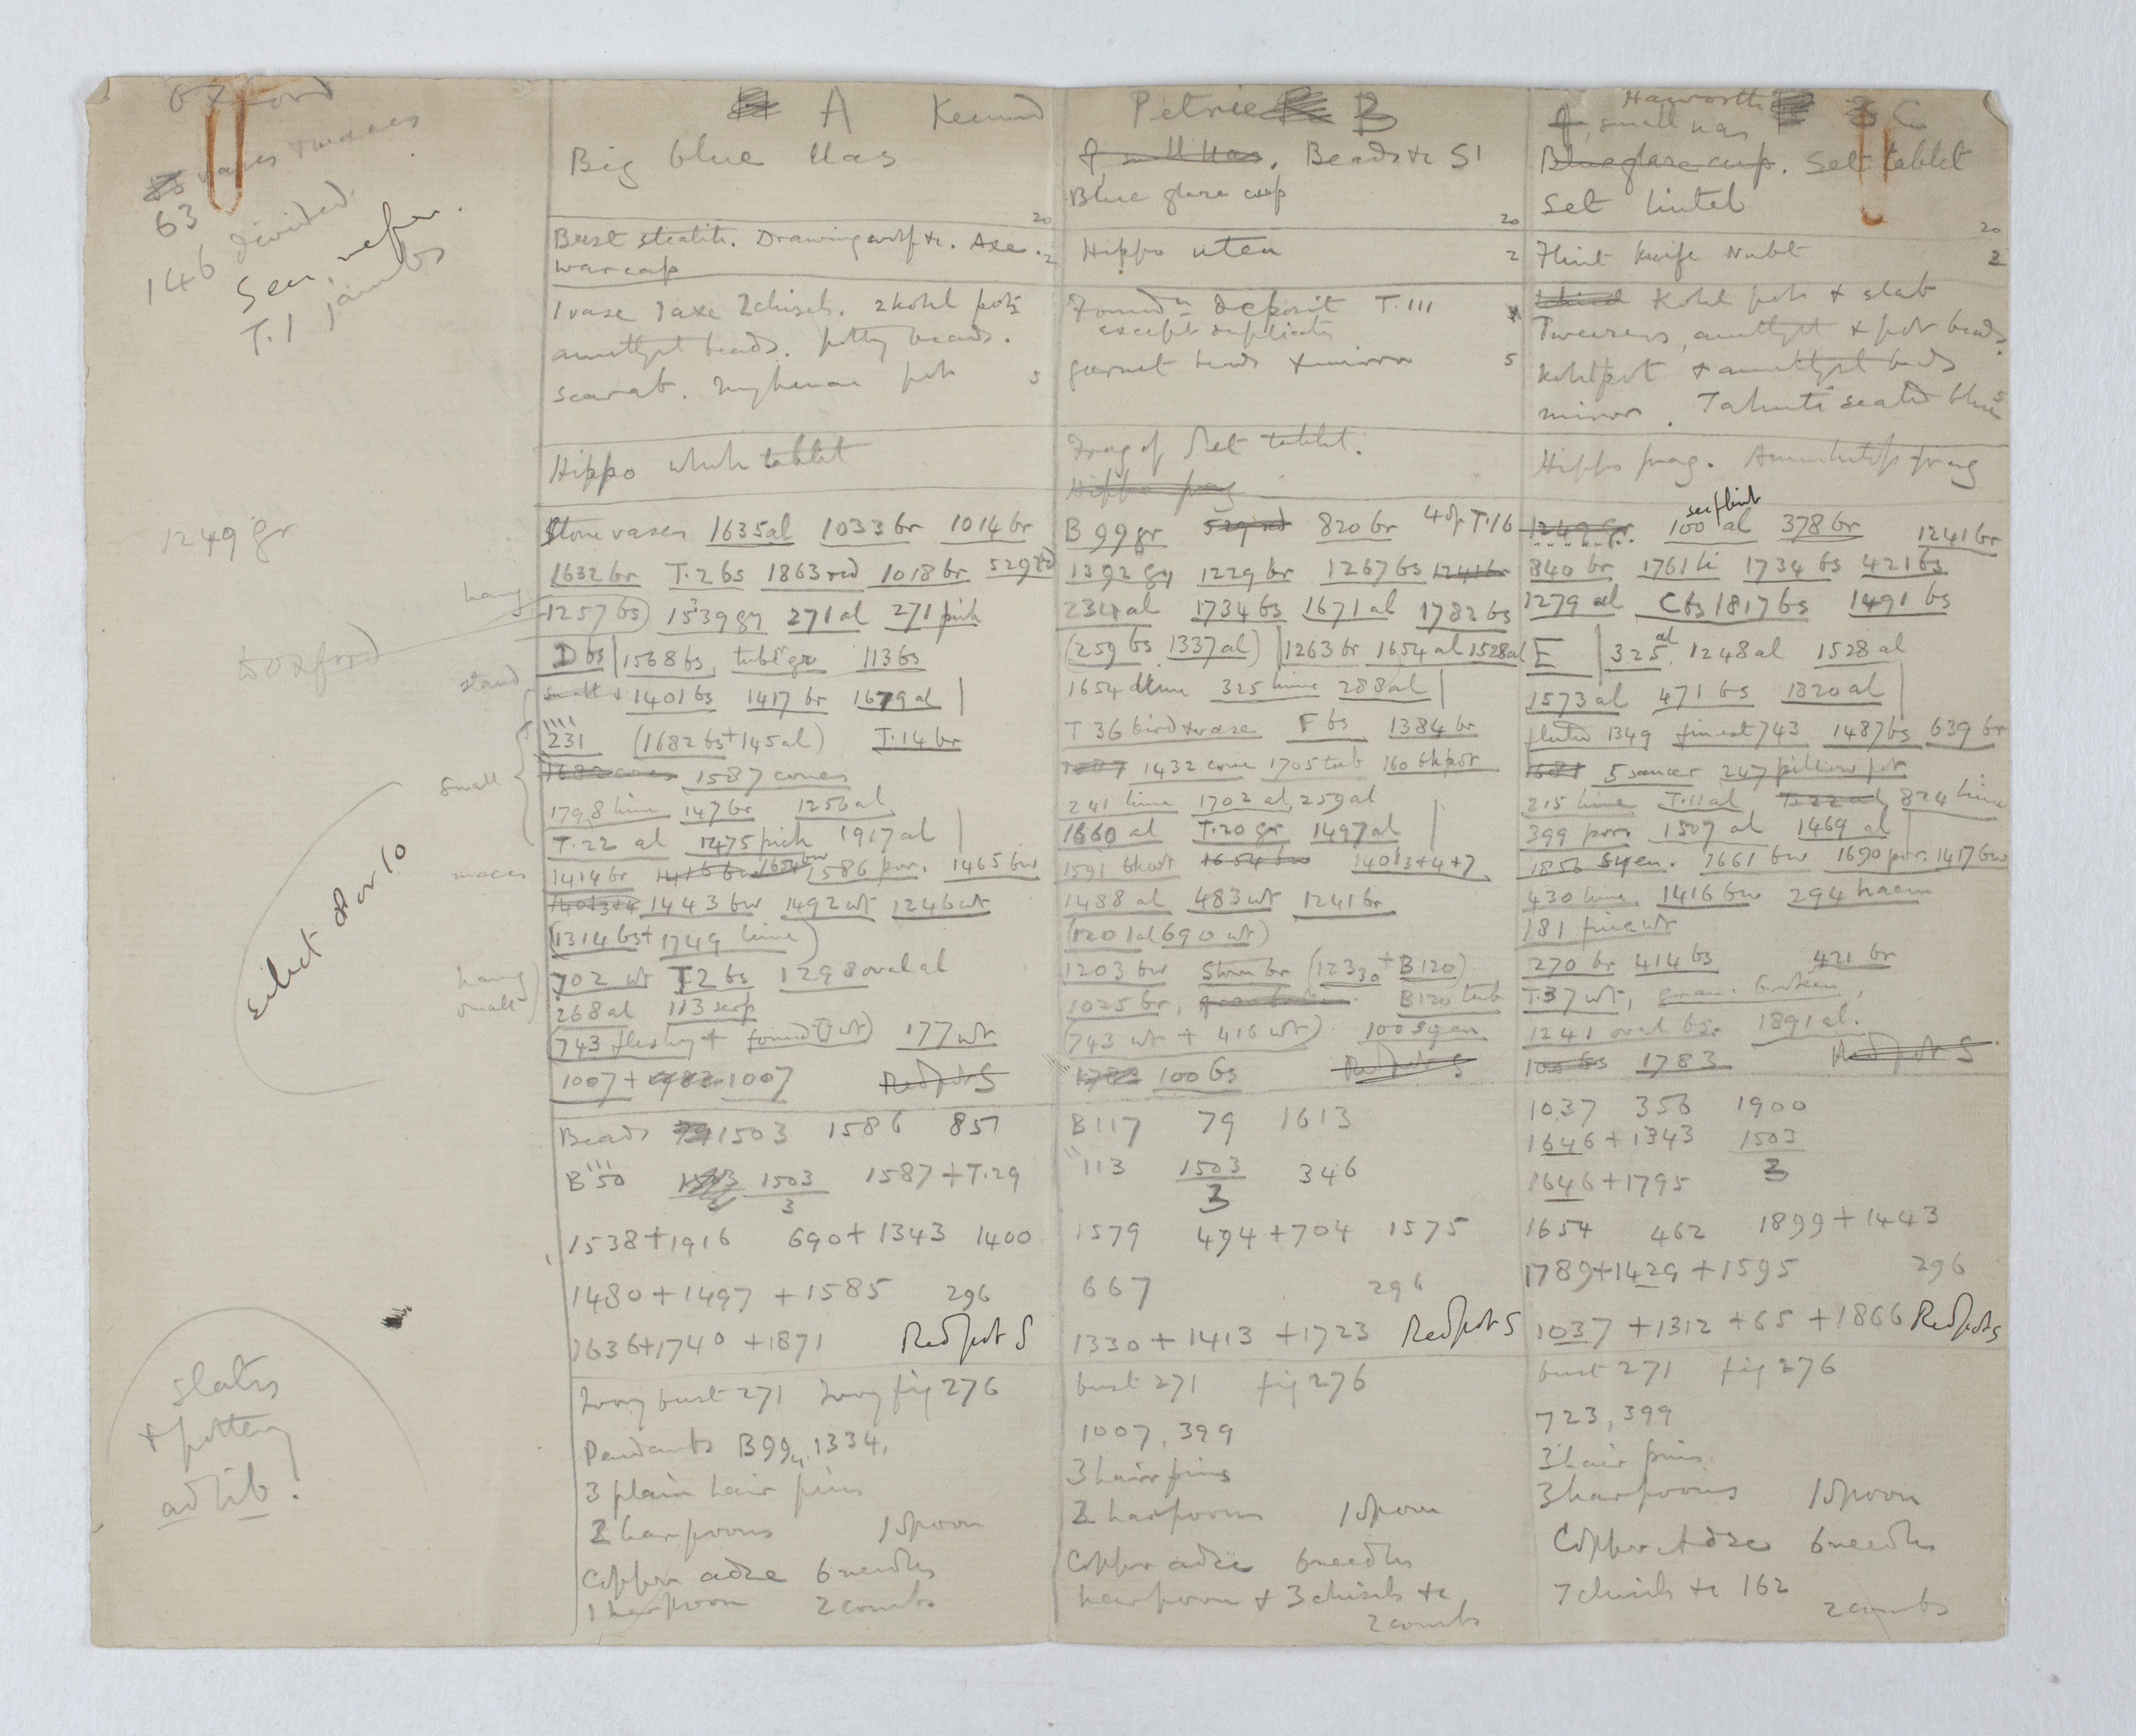 Oxford
vases & maces
63
146 divided
Sen. nefer.
T.1 jambs
1249 gr
to Oxford
Select 8 or 10
slates
& pottery
ad lib!
hang
stand
small
maces
hang
small
A Kennard
Big blue Uas
20
Bust steatite. Drawing wolf &c. Axe. 2
war cap
1 vase 1 axe 2 chisels. 2 kohl pots
amethyst beads. pottery beads.
scarab. Mykenae pot 5
Hippo whole tablet
Stone vases 1635 al 1033 br 1014 br
1632 br T.2 bs 1863 red 1018 br 529 rd
1257 bs) 1539 gy 271 al 271 pink
D bs | 1568 bs, tube gr 113 bs
small & 1401 bs 1417 br 1679 al |
231 (1682 bs + 145 al) T.14 br
1682 cones 1587 cones
1798 lime 147 br 1256 al
T.22 al 1475 pink 1917 al |
1414 br 1416 bw 1654 bw 1586 por. 1465 bw
1401 3+4 1443 bw 1492 wt 1246 wt
(1314 bs + 1749 lime)
702 wt T2 bs 1298 oval al
268 al 113 serp
(743 fleshy + found T wt) 177 wt
1007 + 1783 1007 Red pot S
Beads 79 1503 1586 857
B 50 1503 1503/3 1587 + T.29
1538 + 1916 690 + 1343 1400
1480 + 1497 + 1585 296
1636 + 1740 + 1871 Red pot S
Ivory bust 271 Ivory fig 276
Pendants B99, 1334,
3 plain hair pins
2 harpoons 1 spoon
Copper adze 6 needles
1 harpoon 2 combs
Petrie B
f small Uas. Beads &c S1
Blue glaze cup
20
Hippo uten 2
Found n deposit T.III
except duplicates
garnet beads & mirror 5
Frag of Set tablet.
Hippo frag
B 99 gr 529 rd 820 br 4 of T.16
1392 gy 1229 br 1267 bs 1241 br
234 al 1734 bs 1671 al 1782 bs
(259 bs 1337 al) | 1263 br 1654 al 1528 al
1654 lime 325 lime 288 al |
T 36 bird vase F bs 1384 br
1587 1432 cone 1705 tub 160 bk pot
241 lime 1702 al, 259 al
1660 al T.20 gr 1497 al |
1591 1654 bw 1401 3+4+7
1488 al 483 wt 1241 br
(1201 al 690 wt)
1203 bw Stone br (1233 30 + B120)
1025 br, green broken. B120 tub
(743 wt + 416 wt) 100 syen
1783 100 bs Red pot S
B117 79 1613
113 1503/3 346
1579 494 + 704 1575
667 296
1330 + 1413 + 1723 Red pot S
bust 271 fig 276
1007, 399
3 hair pins
2 harpoons 1 spoon
Copper adze 6 needles
harpoon & 3 chisels &c
2 combs
Haworth C
f small Uas
Blue glaze cup. Set tablet
Set lintel
20
Flint knife Nubt 2
Kohl pot & slab
Tweezers, amethyst & pot beads.
Kohl pot & amethyst beads
mirror. Tahuti seated blue 5
Hippo frag. Amenhotep frag
1249 gr. 100 al 378 br 1241 br
840 br 1761 li 1734 bs 421 bs
1279 al C bs 1817 bs 1491 bs
E | 325 al 1248 al 1528 al
1573 al 471 bs 1820 al |
fluted 1349 finest 743 1487 bs 639 br
1681 5 saucer 247 pillow pot
215 lime T.11 al T.22 al 824 lime
399 porr 1507 al 1469 al |
1856 syen. 1661 bw 1690 por. 1417 bw
430 lime 1416 bw 294 haem
181 fine wt
270 br 414 bs 421 br
T.37 wt, green broken,
1241 oval bs. 1891 al.
100 bs 1783 Red pot S
1037 356 1900
1646 + 1343 1503/3
1646 + 1795
1654 462 1899 + 1443
1789 + 1429 + 1595 296
1037 + 1312 + 65 + 1866 Red pot S
bust 271 fig 276
723, 399
3 hair pins
3 harpoons 1 spoon
Copper Adze 6 needles
7 chisels &c 162
2 combs